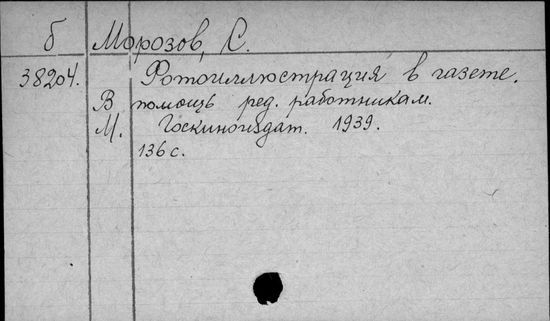 б Морозов, С.
38204. Фотоиллюстрация в газете.
В помощь ред. работникам.
М. Госкиноиздат. 1939.
136 с.